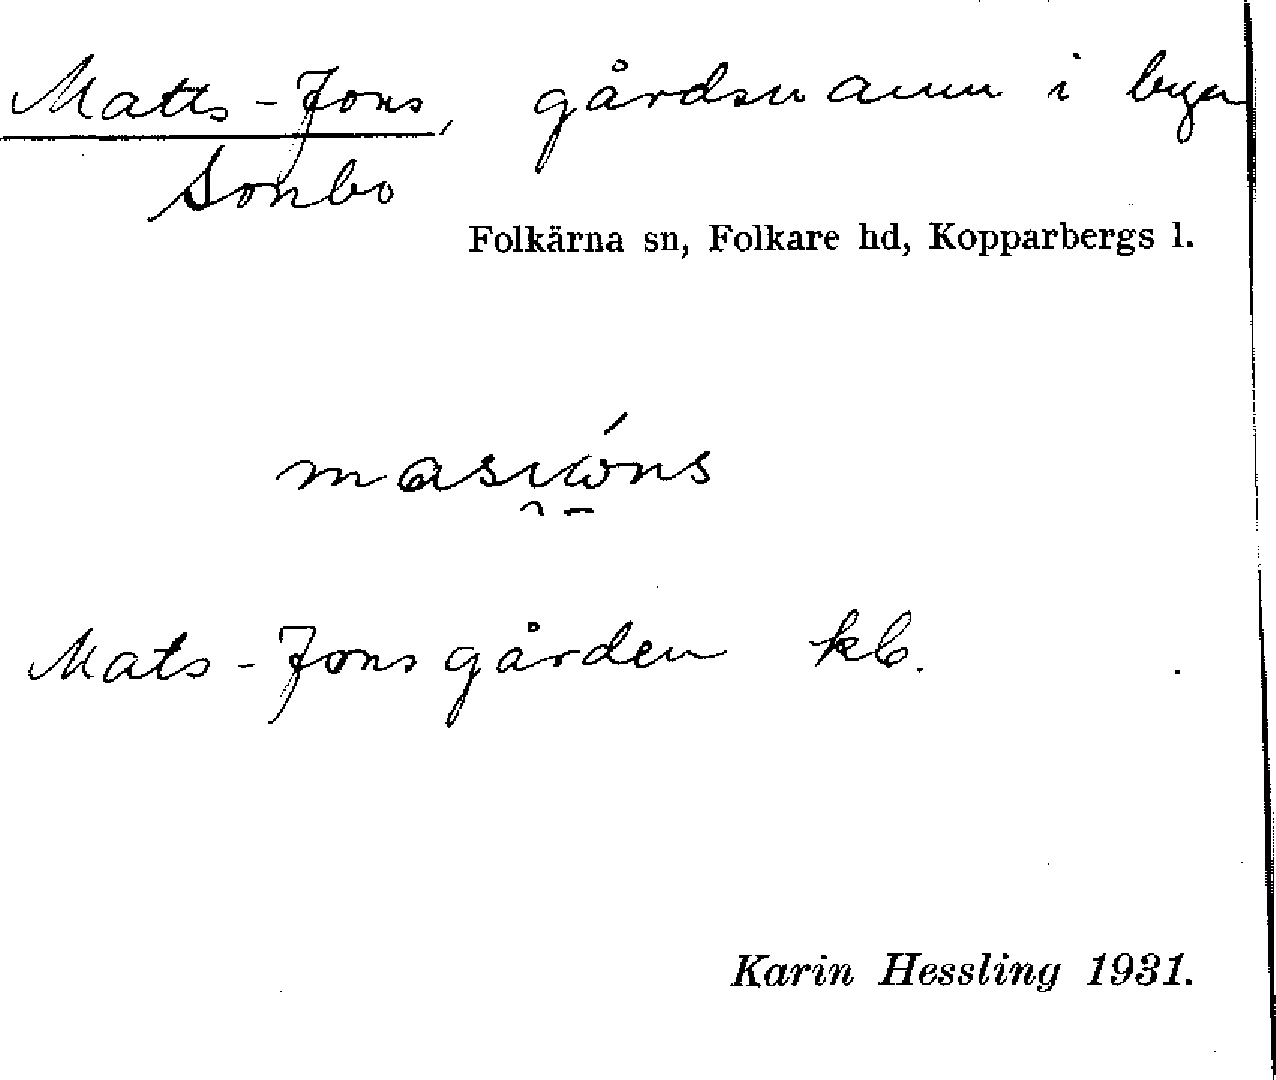 Matts-Jons, gårdsnamn i byn
Sonbo
Folkärna sn, Folkare hd, Kopparbergs l.
Mats-Jonsgården kb.
Karin Hessling 1931.